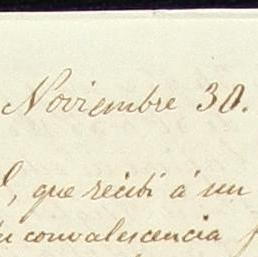 Noviembre 30.
, que recibi á un
convalescencia